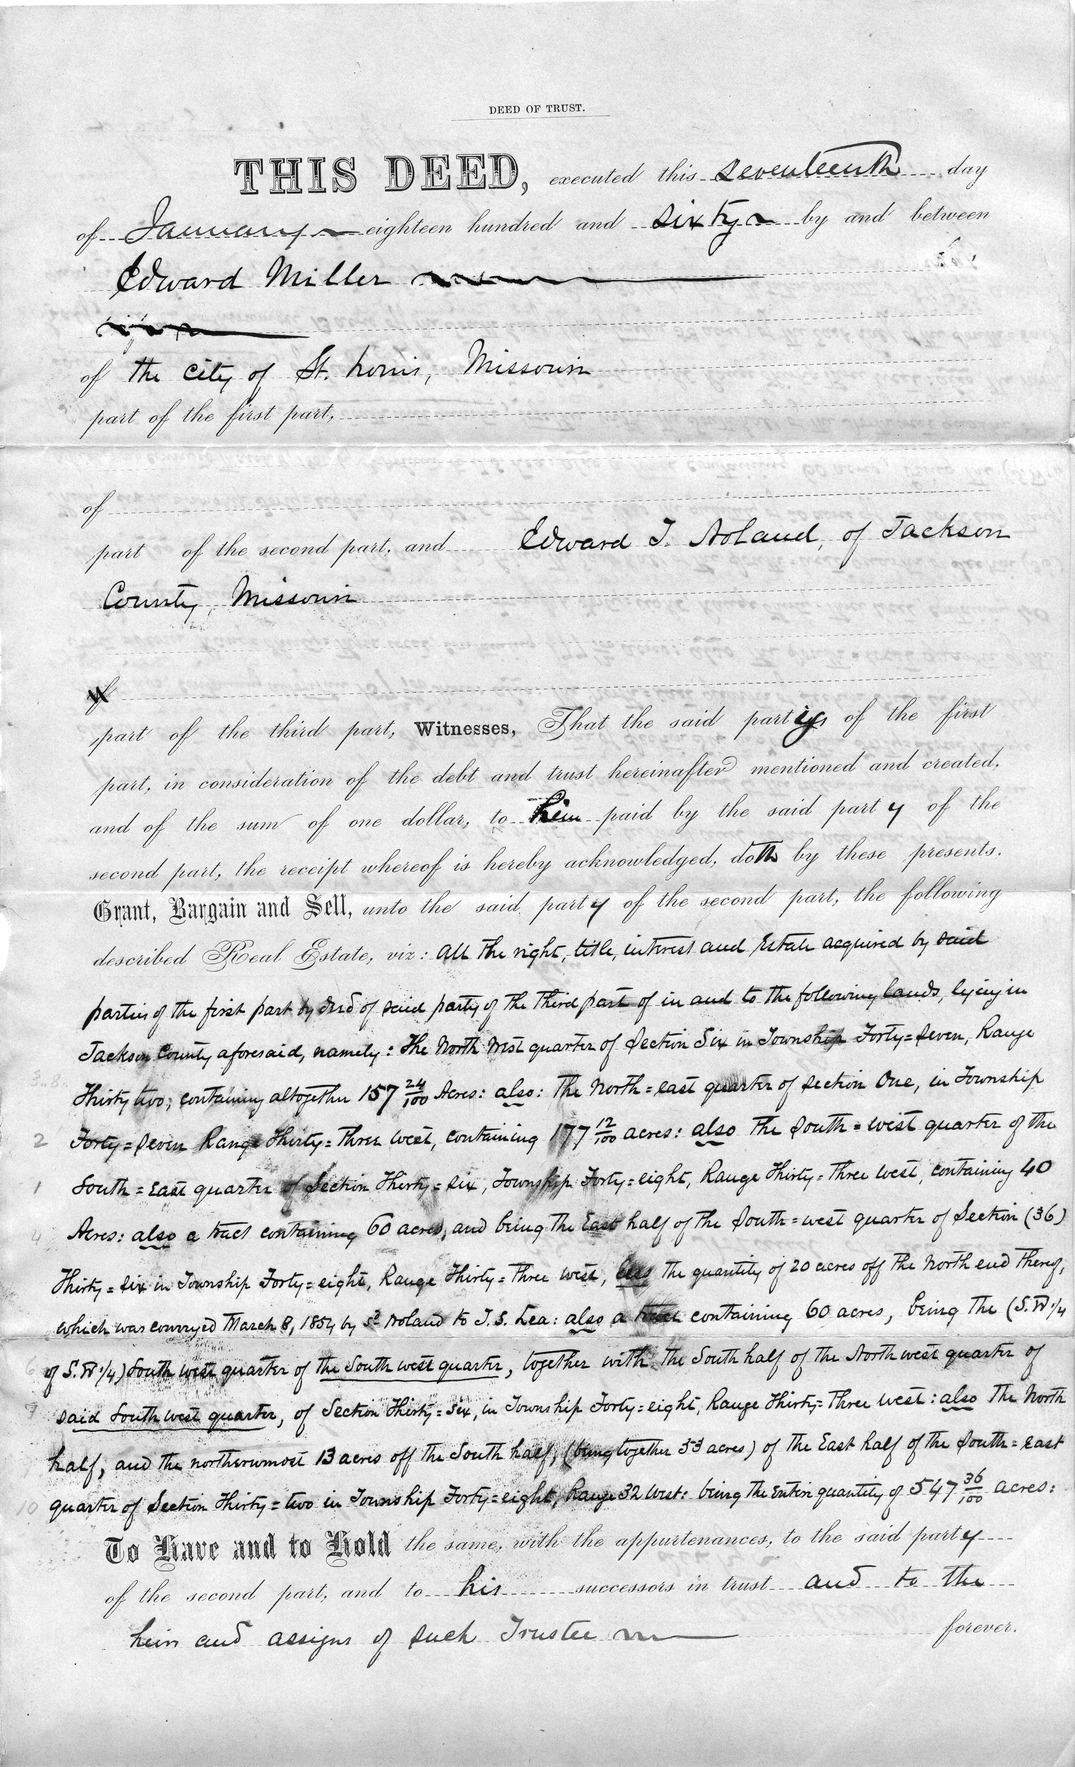 DEED OF TRUST.
THIS DEED, executed this seventeenth day
of January eighteen hundred and sixty by and between
Edward Miller
of the city of St. Louis, Missouri
part of the first part,
of
part of the second part, and Edward T. Noland, of Jackson
County, Missouri
of
part of the third part, Witnesses, That the said party of the first
part, in consideration of the debt and trust hereinafter mentioned and created,
and of the sum of one dollar, to him paid by the said party of the
second part, the receipt whereof is hereby acknowledged, doth by these presents,
Grant, Bargain and Sell, unto the said party of the second part, the following
described Real Estate, viz: All the right, title, interest and Estate acquired by said
parties of the first part by deed of said party of the third part of in and to the following lands, lying in
Jackson County aforesaid, namely: The North West quarter of Section Six in Township Forty=Seven, Range
Thirty two; containing altogether 157 24/100 Acres: also: the North=east quarter of section One, in Township
2 Forty=Seven Range Thirty=three west, containing 177 12/100 acres: also the South=west quarter of the
1 South=East quarter of Section Thirty=six, Township Forty=eight, Range Thirty=three west, containing 40
4 Acres: also a tract containing 60 acres, and being the East half of the South=west quarter of Section (36)
Thirty=six in Township Forty=eight, Range Thirty=three west, less the quantity of 20 acres off the North end thereof,
which was conveyed March 8, 1854 by sd Noland to J. S. Lea: also a tract containing 60 acres, being the (S.W. 1/4
6 of S.W. 1/4) South west quarter of the South west quarter, together with the South half of the North west quarter of
said South west quarter, of Section Thirty=six, in Township Forty=eight, Range Thirty=three west: also the North
half, and the northernmost 13 acres off the South half, (being together 53 acres) of the East half of the South=east
10 quarter of Section Thirty=two in Township Forty=eight, Range 32 West: being the Entire quantity of 547 36/100 acres:
To Have and to Hold the same, with the appurtenances, to the said party
of the second part, and to his successors in trust and to the
heirs and assigns of such Trustee forever.